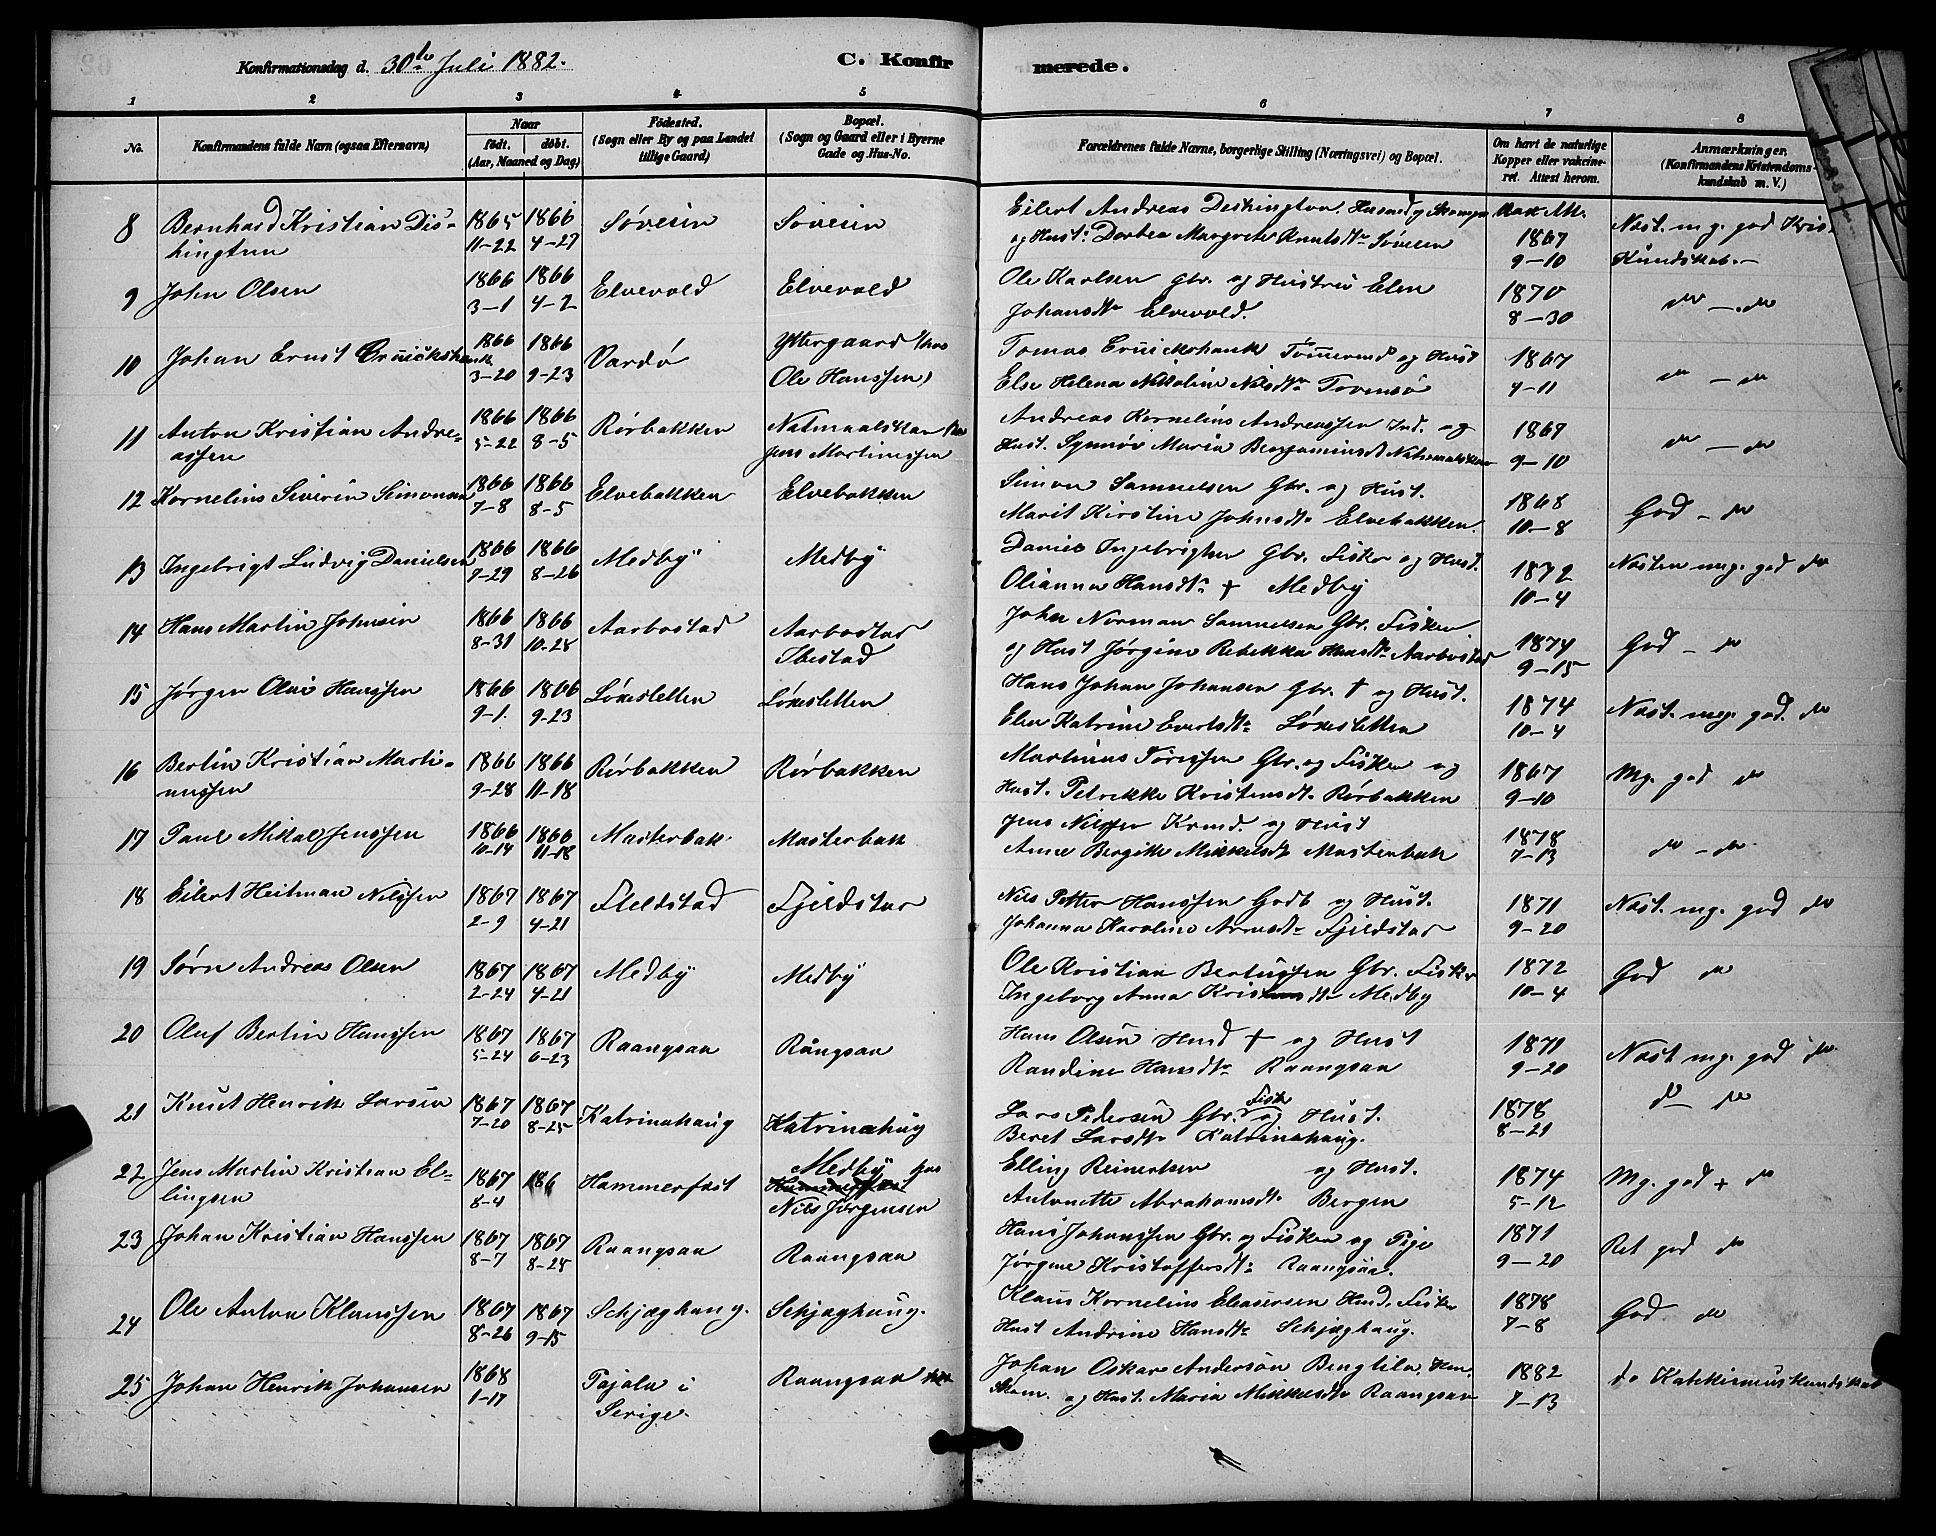 Konfirmationsdag d. 30te Juli 1882.
C. Konfirmerede.
1 2 3 4 5 6 7 8
No. Konfirmandens fulde Navn (ogsaa Efternavn) Naar født. døbt. (Aar, Maaned og Dag) Fødested. (Sogn eller By og paa Landet tillige Gaard) Bopæl. (Sogn og Gaard eller i Byerne Gade og Hus-No. Forældrenes fulde Navne, borgerlige Stilling (Næringsvei) og Bopæl. Om havt de naturlige Kopper eller vaccineret. Attest herom. Anmærkninger. (Konfirmandens Kristendomskundskab m. V.)
8 Bernhard Kristian Dis- 1865 1866 Søveien Søveien Eilert Andreas Deshington. Husmd og
hington 11-22 4-27 og Hust: Dorbea Margrete Knutsdtr Søveien 1867 Næst. mg. god Kris.
9-10 Kundskab.-
9 John Olsen 1866 1866 Elvevold Elvevold Ole Karlsen Gbr. og Hustru Elen 1870 do - do
3-1 4-2 Johansdtr Elvevold. 8-30
10 Johan Ernst Cruickshank 1866 1866 Vardø Yttergaard (hos Tomas Cruickshank Tømermd og Hust 1867 do - do
3-20 9-23 Ole Hanssen) Else Helena Nikoline Nilsdtr Tromsø 4-11
11 Anton Kristian Andre- 1866 1866 Rørbakken (hos Andreas Kornelius Andreassen Ind. og 1869 do - do
assen 5-22 8-5 Jens Martinussen Hust. Synnøv Maria Benjaminsdt 9-10
12 Kornelius Siverin Simonsen 1866 1866 Elvebakken Elvebakken Simon Samuelsen Gbr. og Hust. 1868 God - do
7-8 8-5 Marit Kirstine Johnsdtr Elvebakken. 10-8
13 Ingebrigt Ludvig Danielsen 1866 1866 Medby Medby Daniel Ingebrigtsen Gbr. Fisker og Hust. 1872 Næsten mg. god do
7-29 8-26 Olianna Hansdtr † Medby 10-4
14 Hans Martin Johnsen 1866 1866 Aarbostad Aarbostad John Norman Samuelsen Gbr. Fisker 1874 God - do
8-31 10-28 Ibestad og Hust Jørgine Rebekka Hansdtr Aarbostad 9-15
15 Jørgen Olai Hanssen 1866 1866 Løksletten Løksletten Hans Johan Johansen Gbr. † og Hust. 1874 Næst. mg. god. do
9-1. 9-23 Elen Katrine Evertsdtr Løksletten 10-4
16 Bertin Kristian Marti- 1866 1866 Rørbakken Rørbakken Martinus Tørrissen Gbr. og Fisker og 1867 Mg. god do
nussen 9-28 11-18 Hust. Petrikke Kristensdtr Rørbakken 9-10
17 Paul Mikal Jenssen 1866 1866 Masterbak Masterbak Jens Nilssen og Hust 1878 do - do
10-14 11-18 Anne Bergitte Mikkelsdtr Masterbak 7-13
18 Eilert Heitman Nilssen 1867 1867 Fjeldstad Fjeldstad Nils Petter Hanssen Gadb og Hust. 1871 Næst. mg. god do
2-9 4-21 Johanna Karoline Arnesdtr Fjeldstad 9-20
19 Sørn Andreas Olsen 1867 1867 Medby Medby Ole Kristian Bertussen Gbr. Fisker 1872 God do
2-24 4-21 Ingeborg Anna Medby 10-4
20 Oluf Bertin Hanssen 1867 1867 Raangsaa Rångsaa Hans Olsen Husd † og Hust 1871 Næst mg. god do
5-24 6-23 Randine Hansdtr Raangsaa 9-20
21 Knut Henrik Larsen 1867 1867 Katrinahaug Katrinahug Lars Pedersen Gbr. Fisk og Hust. 1878 do - do
7-20 8-25 Beret Larsdtr Katrinahaug. 8-21
22 Jens Martin Kristian El- 1867 186 Hammerfest Medby hos Elling Reinertsen og Hust. 1874 Mg. god + do
lingsen 8-4 Hammerfest Nils Jørgensen Antonette Abrahamsdtr Bergen 5-12
23 Johan Kristian Hanssen 1867 1867 Raangsaa Raangsaa Hans Johanssen Gbr. og Fisker og Pige 1871 Ret god do
8-7 8-25 Jørgine Kristoffersdtr Raangsaa. 9-20
24 Ole Anton Klaussen 1867 1867 Schjæghaug. Schjæghaug. Klaus Kornelius Eleasersen Husd. Fisker 1878 God do
8-26 9-15 Hust Andrine Hansdtr Schjæghaug. 7-8
25 Johan Henrik Johansen 1868 Pajala i Raangsaa Johan Oskar Anderson 1882 do Katekismuskundskab
1-17 Serige. og Hust. Maria Mikkelsdtr Raangsaa 7-13